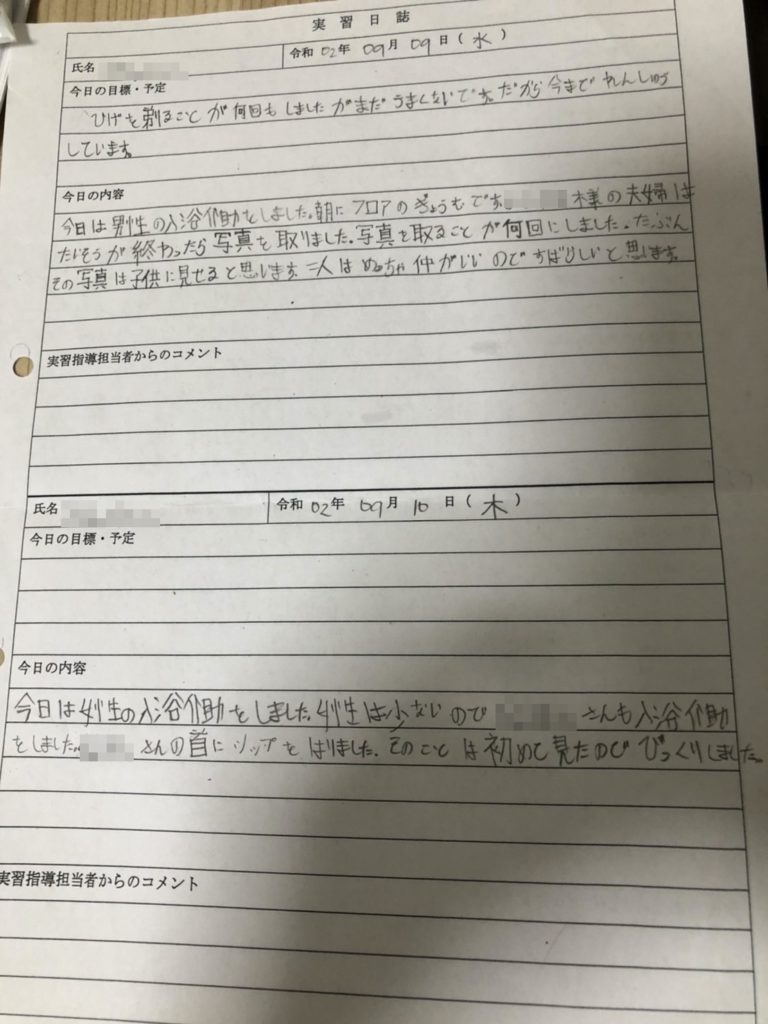 実習日誌
氏名 令和 02年 09月 09日(水)
今日の目標・予定
ひげを剃ることが何回もしましたがまだうまくないです。だから今までれんしゅう
しています。
今日の内容
今日は男性の入浴介助をしました。朝にフロアのぎょうむです。 様の夫婦は
たいそうが終わったら写真を取りました。写真を取ることが何回にしました。たぶん
その写真は子供に見せると思います。二人はめっちゃ仲がいいのですばりしいと思います。
実習指導担当者からのコメント
氏名 令和 02年 09月 10日(木)
今日の目標・予定
今日の内容
今日は女性の入浴介助をしました。女性は少ないので さんも入浴介助
をしました。 さんの首に をはりました。そのことは初めて見たのでびっくりしました。
実習指導担当者からのコメント